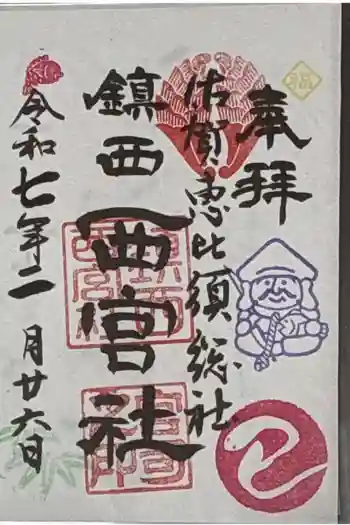 奉拝
福
佐賀恵比須総社
鎮西西宮社
令和七年二月廿六日